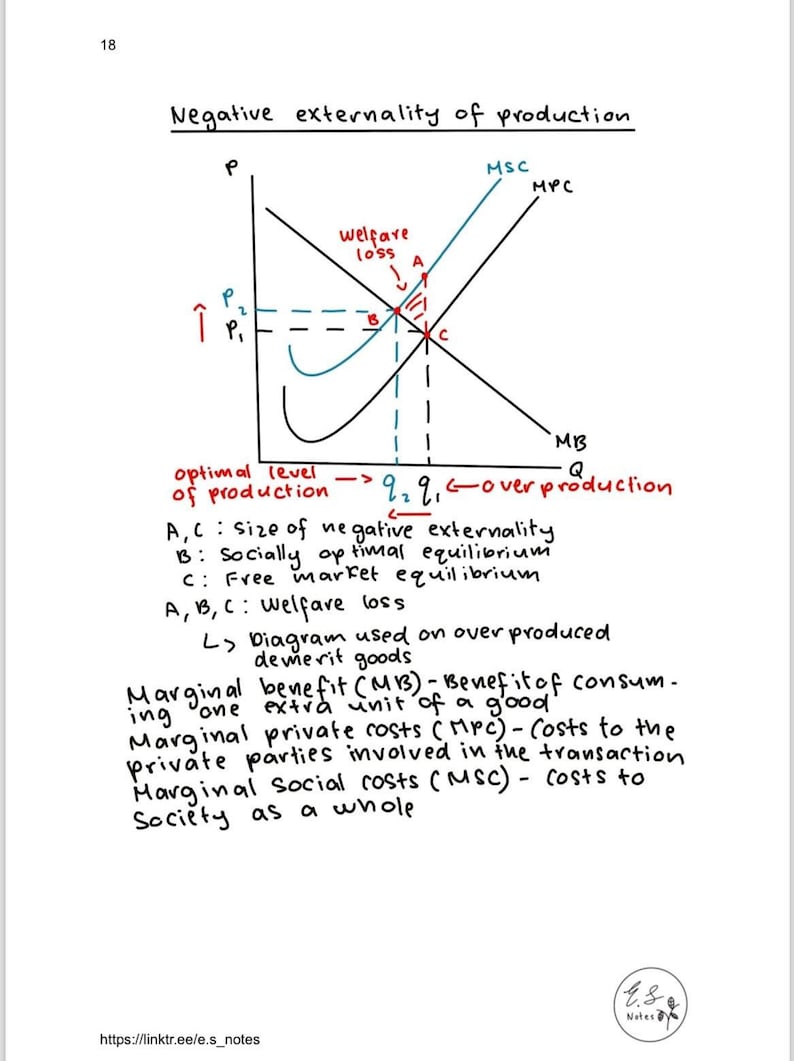 18
Negative externality of production
P
MSC
MPC
welfare
loss
A
P2
B
P1
C
MB
Q
optimal level
of production
q2 q1
over production
A, C : Size of negative externality
B : Socially optimal equilibrium
C : Free market equilibrium
A, B, C : Welfare loss
↳ Diagram used on over produced
demerit goods
Marginal benefit (MB) - Benefit of consum-
ing one extra unit of a good
Marginal private costs (MPC) - Costs to the
private parties involved in the transaction
Marginal Social costs (MSC) - Costs to
Society as a whole
E.S
Notes
https://linktr.ee/e.s_notes